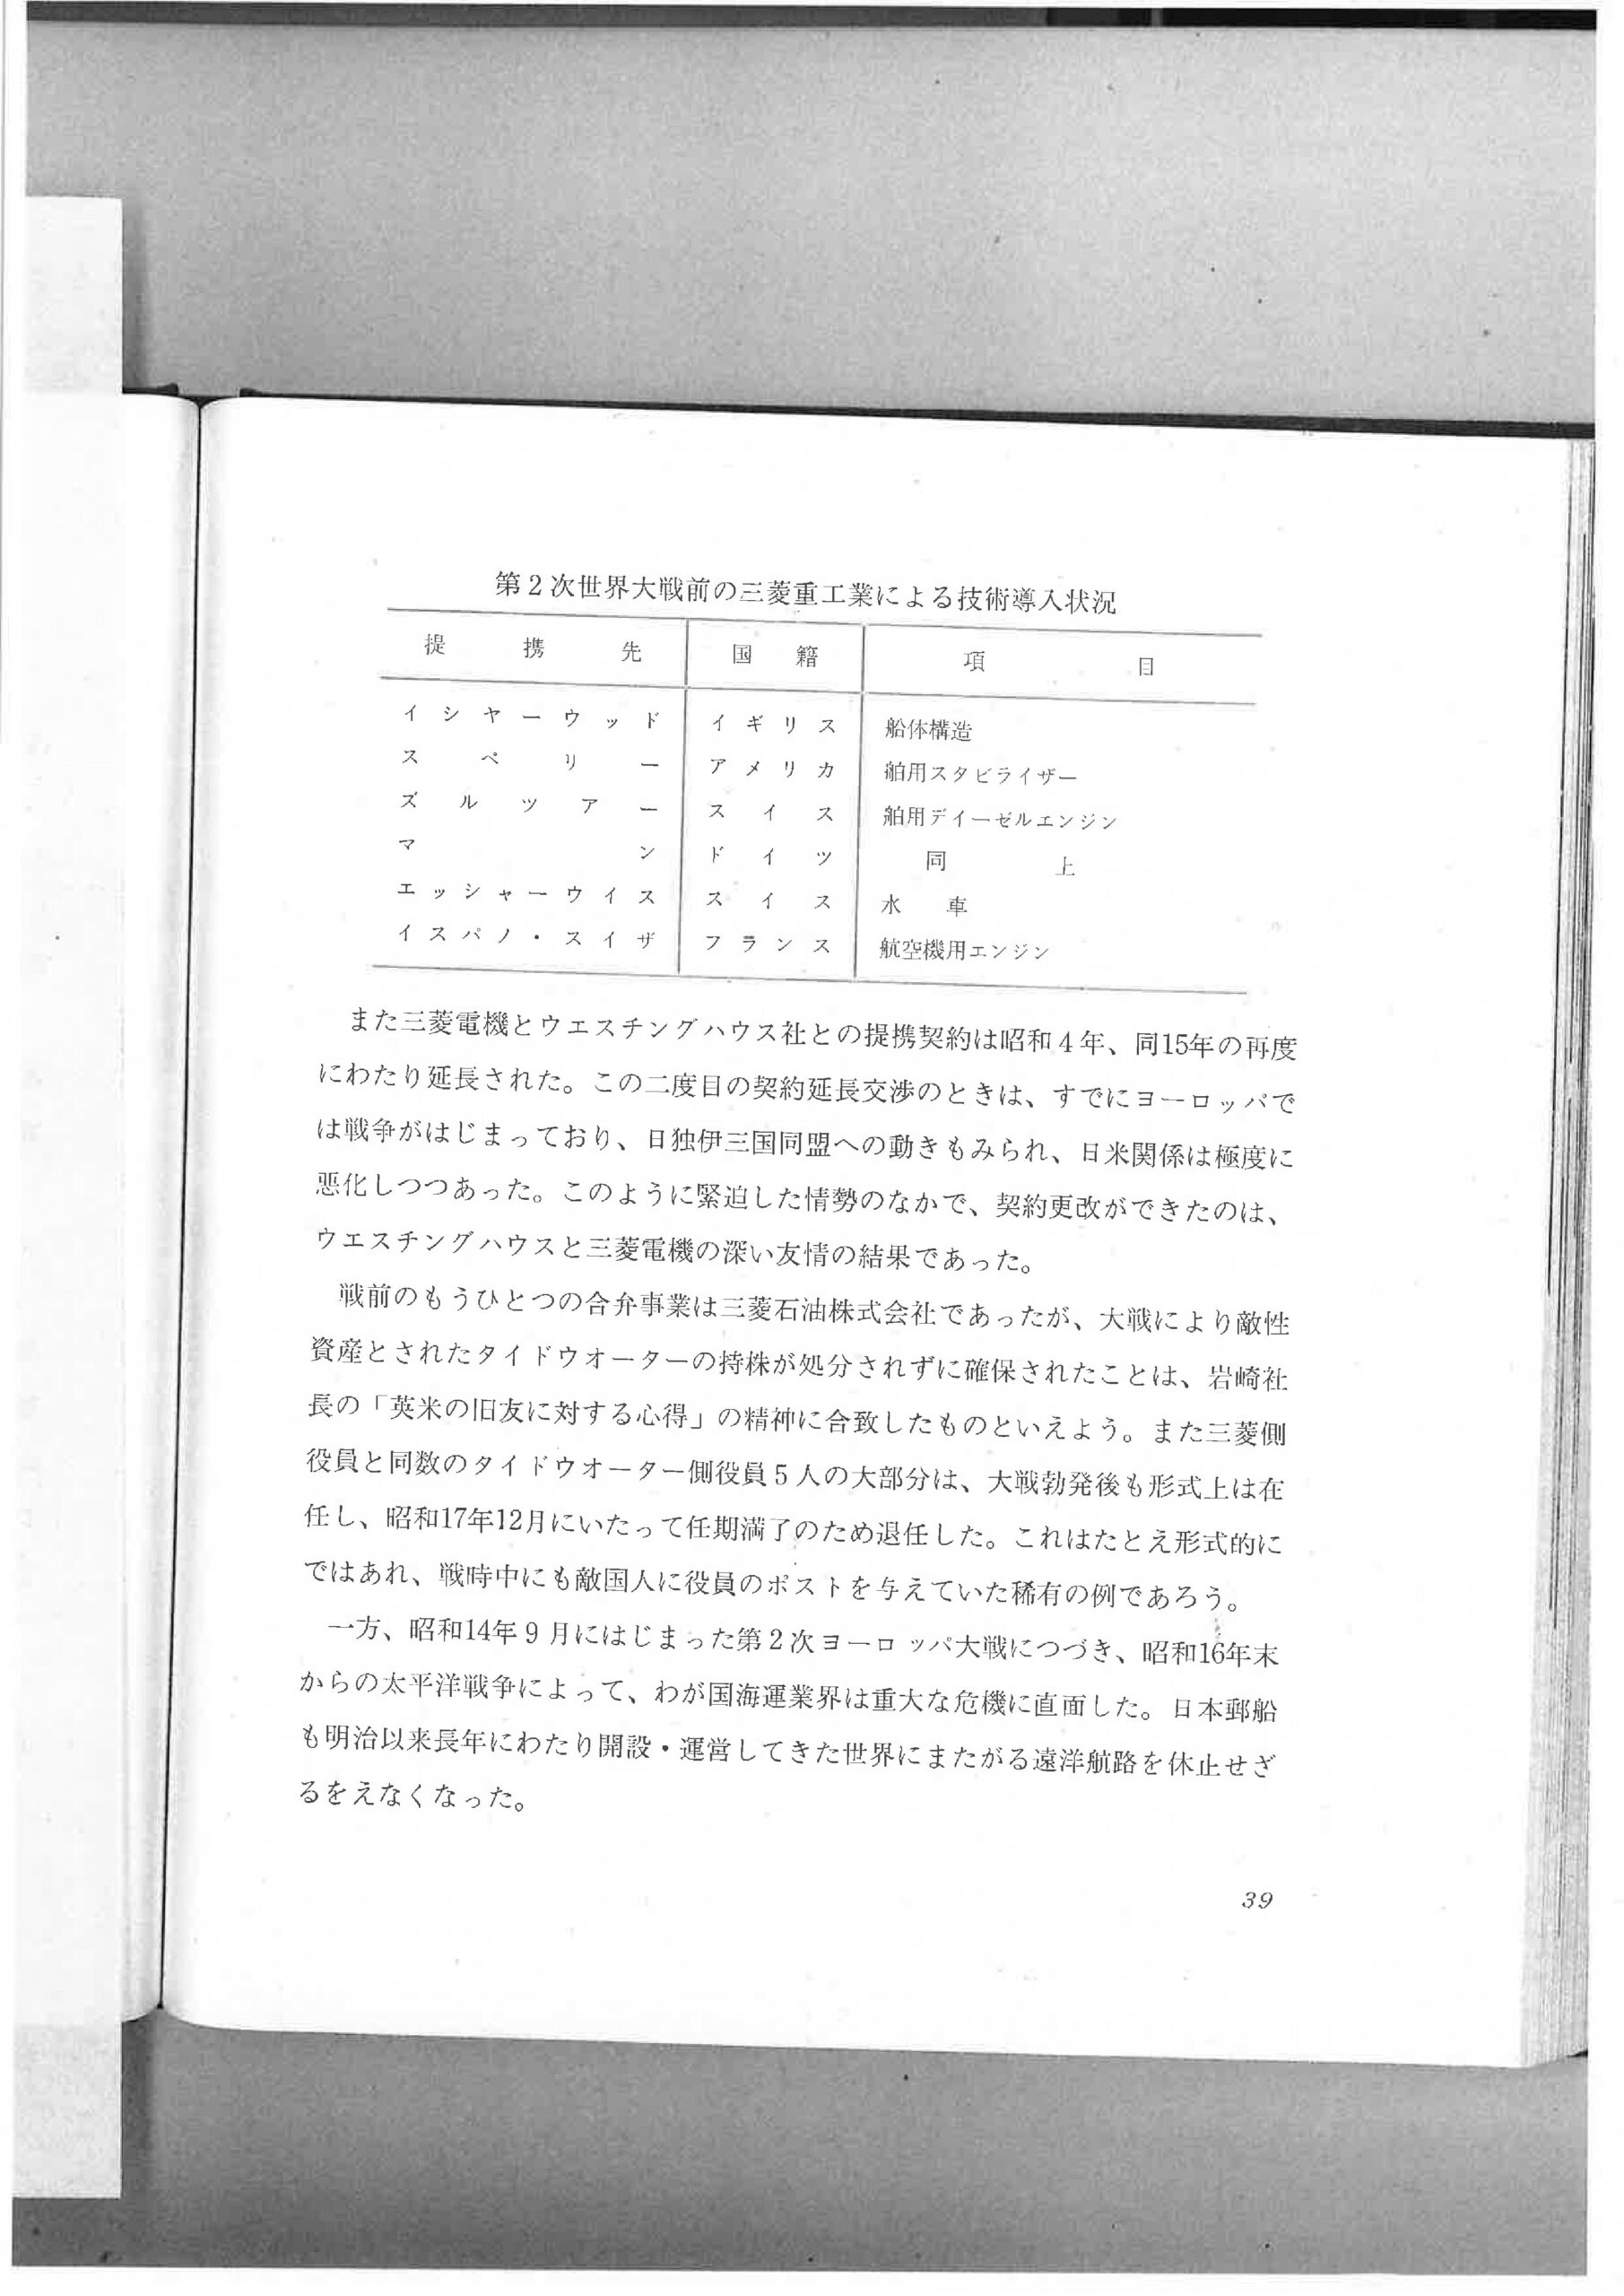 第2次世界大戦前の三菱重工業による技術導入状況
提携先 国籍 項目
イシャーウッド イギリス 船体構造
スペリー アメリカ 舶用スタビライザー
ズルツアー スイス 舶用デイーゼルエンジン
マン ドイツ 同上
エッシャーウイス スイス 水車
イスパノ・スイザ フランス 航空機用エンジン
また三菱電機とウエスチングハウス社との提携契約は昭和4年、同15年の再度
にわたり延長された。この二度目の契約延長交渉のときは、すでにヨーロッパで
は戦争がはじまっており、日独伊三国同盟への動きもみられ、日米関係は極度に
悪化しつつあった。このように緊迫した情勢のなかで、契約更改ができたのは、
ウエスチングハウスと三菱電機の深い友情の結果であった。
戦前のもうひとつの合弁事業は三菱石油株式会社であったが、大戦により敵性
資産とされたタイドウオーターの持株が処分されずに確保されたことは、岩崎社
長の「英米の旧友に対する心得」の精神に合致したものといえよう。また三菱側
役員と同数のタイドウオーター側役員5人の大部分は、大戦勃発後も形式上は在
任し、昭和17年12月にいたって任期満了のため退任した。これはたとえ形式的に
ではあれ、戦時中にも敵国人に役員のポストを与えていた稀有の例であろう。
一方、昭和14年9月にはじまった第2次ヨーロッパ大戦につづき、昭和16年末
からの太平洋戦争によって、わが国海運業界は重大な危機に直面した。日本郵船
も明治以来長年にわたり開設・運営してきた世界にまたがる遠洋航路を休止せざ
るをえなくなった。
39